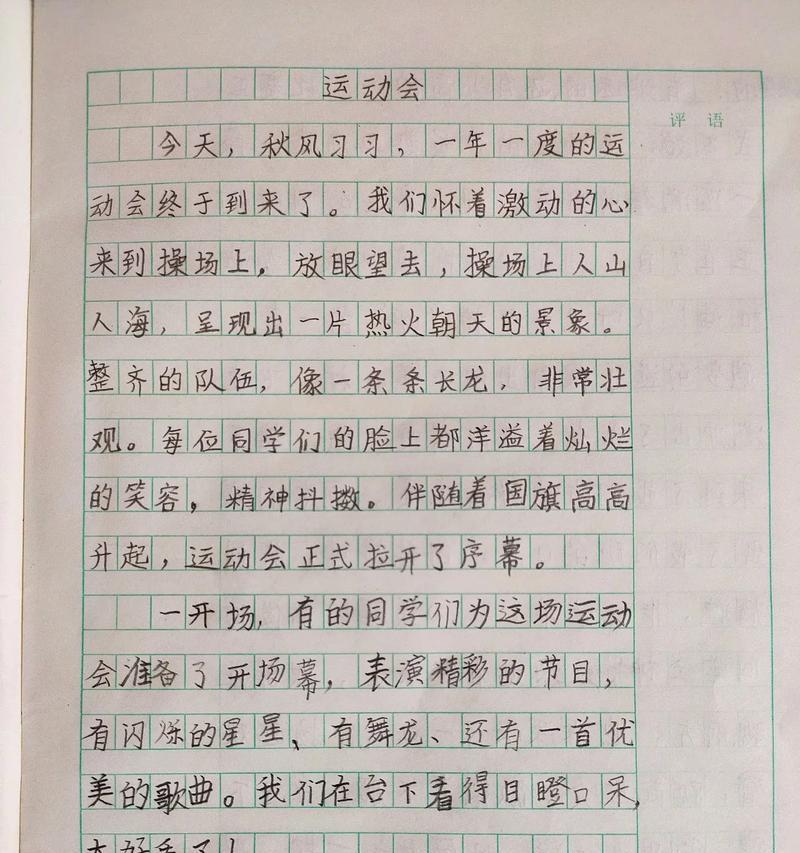 运动会
评语
今天，秋风习习，一年一度的运
动会终于到来了。我们怀着激动的心
来到操场上。放眼望去，操场上人山
人海，呈现出一片热火朝天的景象。
整齐的队伍，像一条条长龙，非常壮
观。每位同学们的脸上都洋溢着灿烂
的笑容，精神抖擞。伴随着国旗高高
升起，运动会正式拉开了序幕。
一开场，有的同学们为这场运动
会准备了开场幕，表演精彩的节目，
有闪烁的星星、有舞龙、还有一首优
美的歌曲。我们在台下看得目瞪口呆，
太好看了！